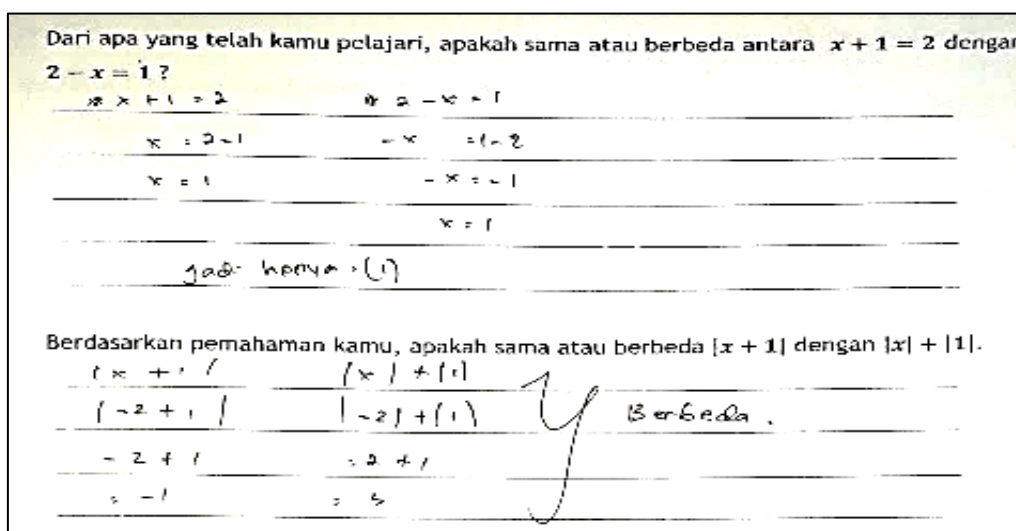 Dari apa yang telah kamu pelajari, apakah sama atau berbeda antara x + 1 = 2 dengan
2 – x = 1 ?
* x + 1 = 2 * 2 - x = 1
x = 2 - 1 - x = 1 - 2
x = 1 - x = - 1
x = 1
jadi hanya = (1)
Berdasarkan pemahaman kamu, apakah sama atau berbeda |x + 1| dengan |x| + |1|.
| x + 1 | | x | + |1|
| -2 + 1 | | -2| + (1) Berbeda.
- 2 + 1 = 2 + 1
= -1 = 3